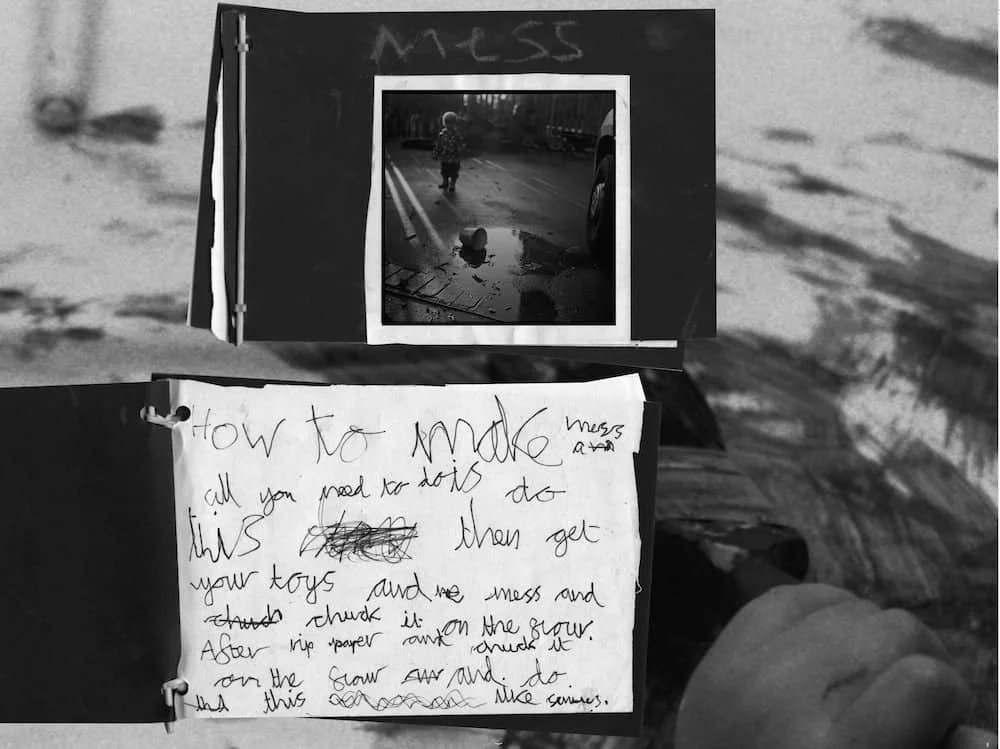 mess
How to make mess
all you need to do is do
this then get
your toys and mess and
chuck it on the flour.
After rip paper and chuck it
on the flour and do
this like